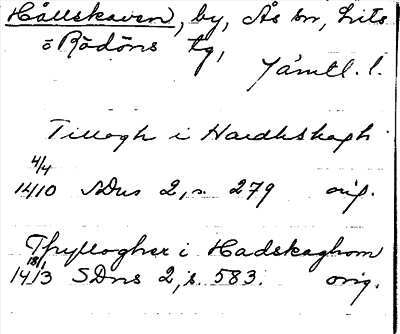 Hållskaven, by, Ås sn, Lits
o Rödöns tg,
Jämtl. l.
Tillogh i Hardhskagh
4/4
1410 SDns 2, s. 279 orig.
Thyllogher i Hadskaghom
18/1
1413 SDns 2, s. 583. orig.